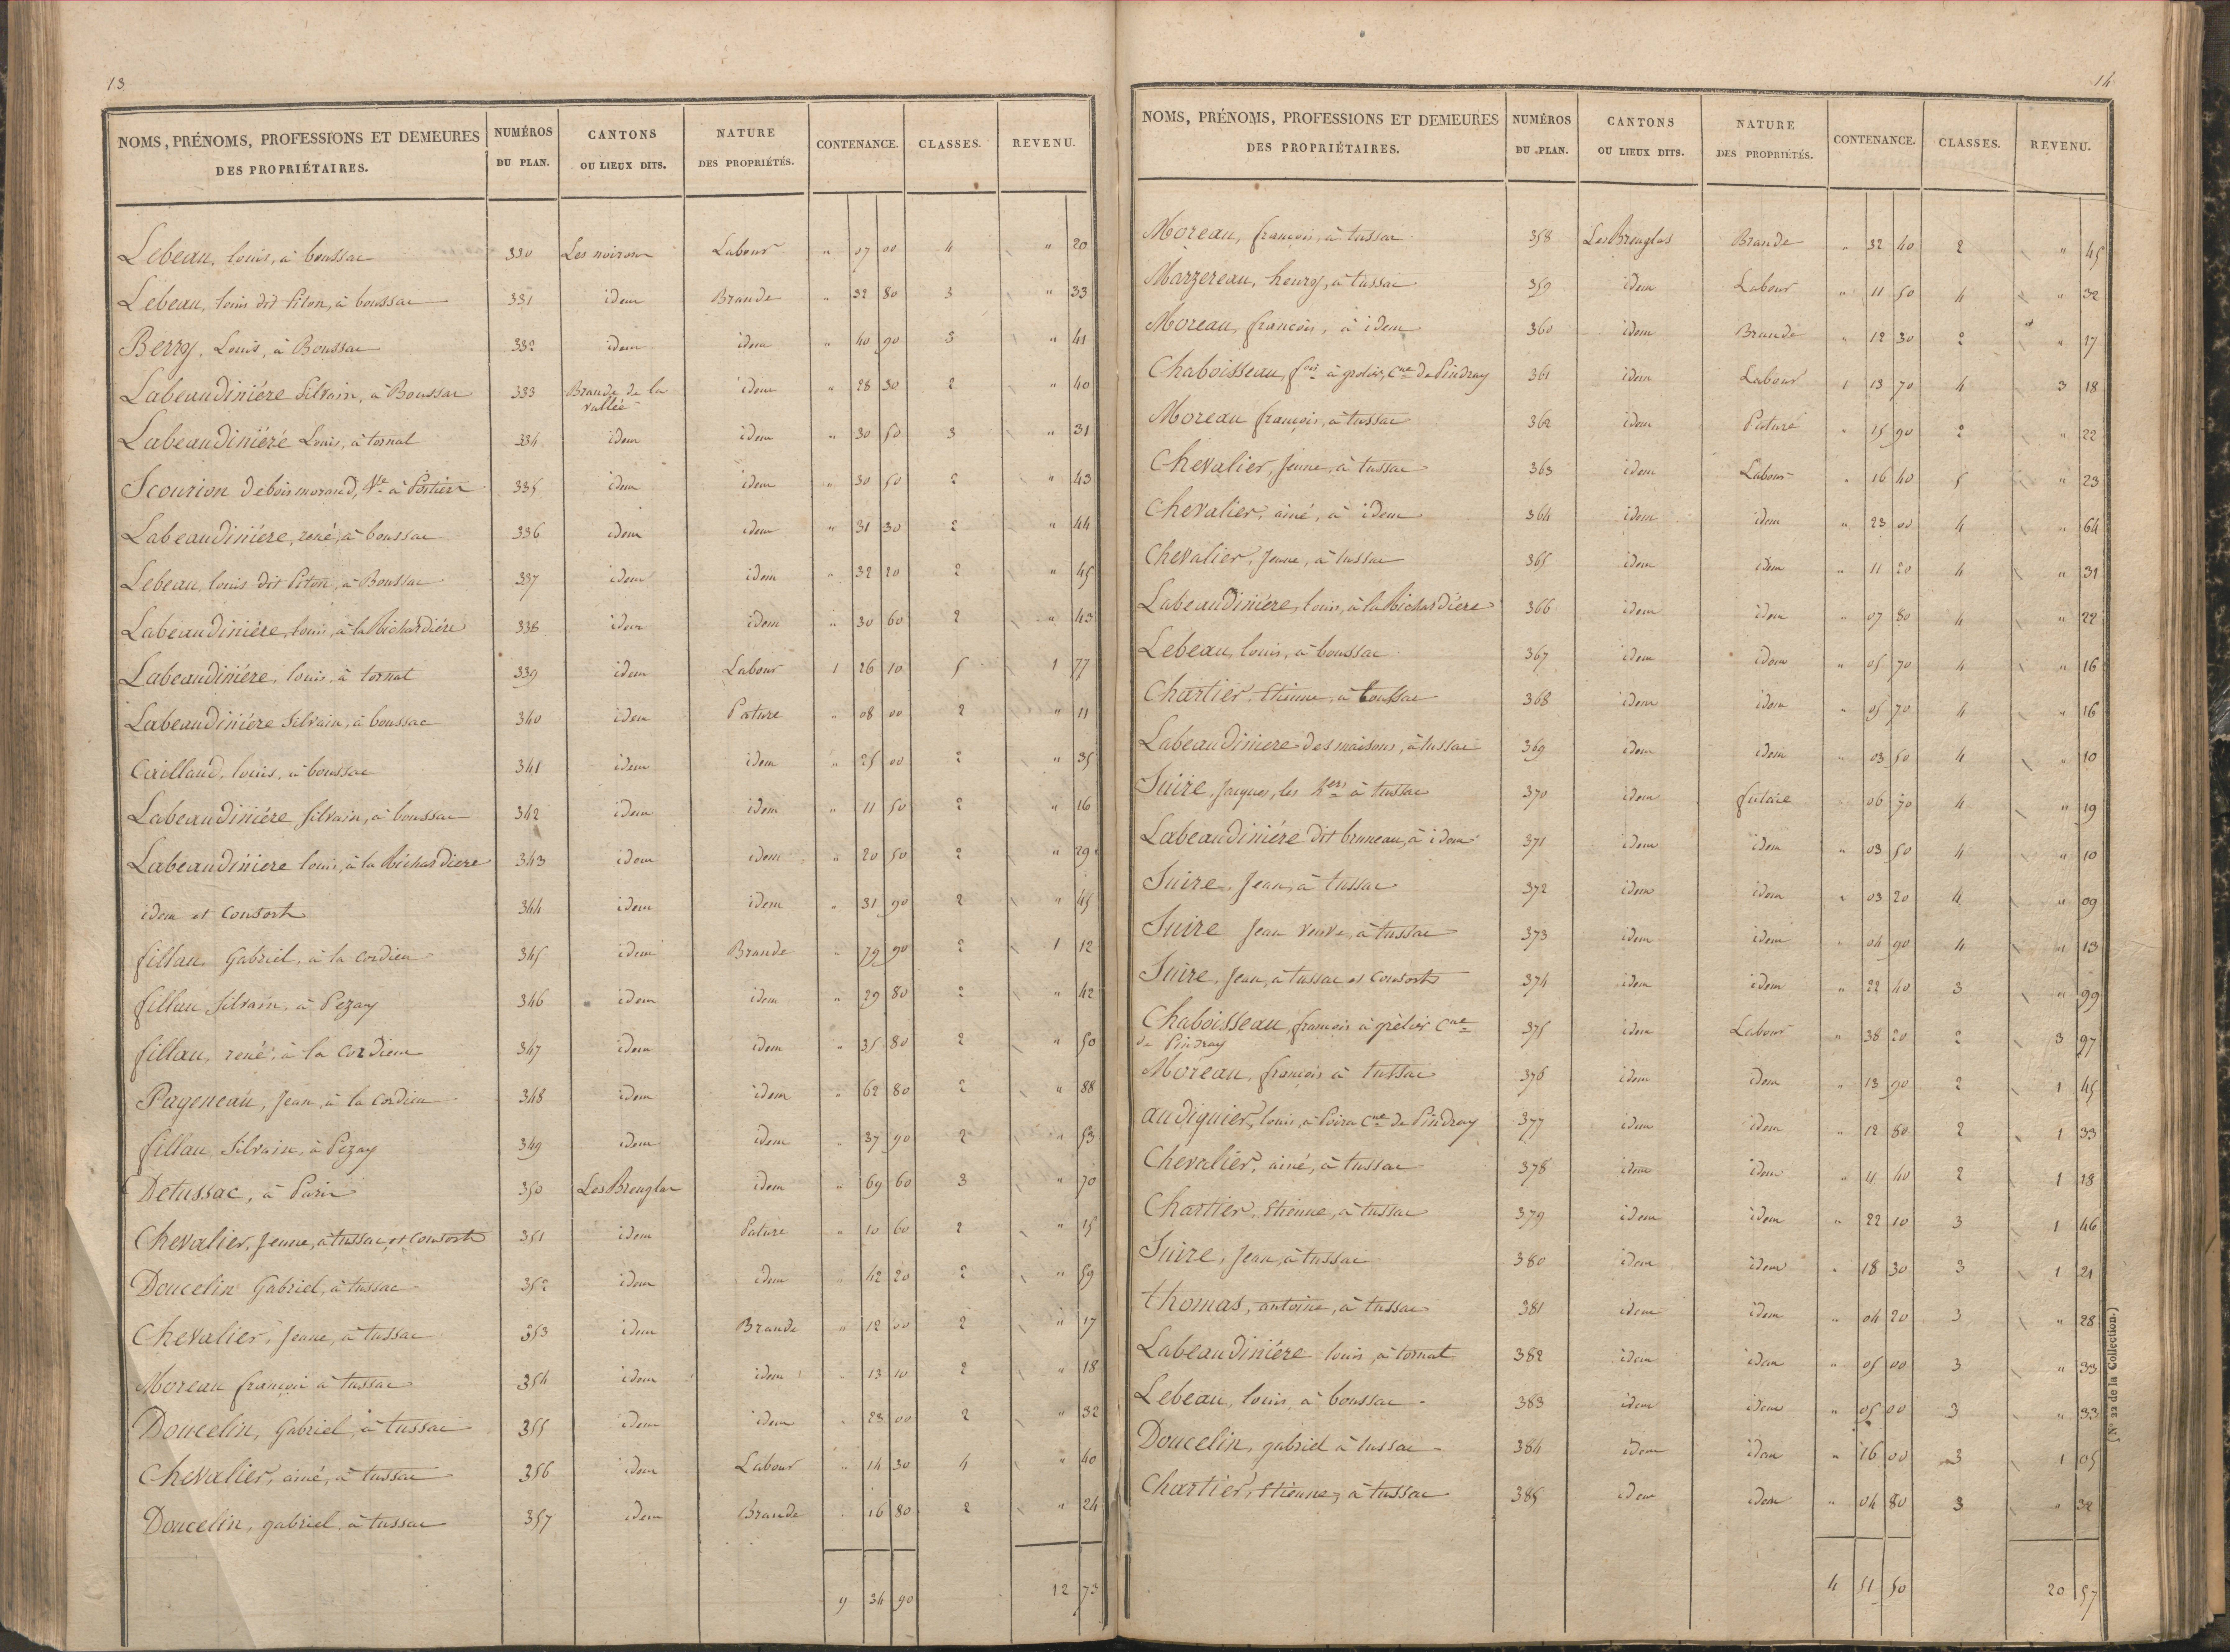 13
NOMS, PRÉNOMS, PROFESSIONS ET DEMEURES DES PROPRIÉTAIRES. NUMÉROS DU PLAN. CANTONS OU LIEUX DITS. NATURE DES PROPRIÉTÉS. CONTENANCE. CLASSES. REVENU.
Lebeau, louis, à boussac 330 Les noirons Labour " 07 00 4 " 20
Lebeau, louis dit Piton, à boussac 331 idem Brande " 32 80 3 " 33
Berry, Louis, à Boussac 332 idem idem " 40 90 3 " 41
Labeaudiniére Silvain, à Boussac 333 Brande de la vallée idem " 28 30 2 " 40
Labeaudiniéré Louis, à tornat 334 idem idem " 30 50 3 " 31
Scourion deboismorand, Ve à Poitiers 335 idem idem " 30 50 2 " 43
Labeaudiniére, rené, à boussac 336 idem idem " 31 30 2 " 44
Lebeau, louis dit Piton, à Boussac 337 idem idem " 32 20 2 " 45
Labeaudiniére, louis, à la Richardiére 338 idem idem " 30 60 2 " 43
Labeaudiniére, louis, à tornat 339 idem Labour 1 26 10 5 1 77
Labeaudiniére Silvain, à boussac 340 idem Pature " 08 00 2 " 11
Caillaud, louis, à boussac 341 idem idem " 25 00 2 " 35
Labeaudiniére, Silvain, à boussac 342 idem idem " 11 50 2 " 16
Labeaudiniere louis, à la Richardiere 343 idem idem " 20 50 2 " 29
idem et Consorts 344 idem idem " 31 90 2 " 45
fillau Gabriel, à la Cordieu 345 idem Brande " 79 90 2 1 12
fillau Silvain, à Pezay 346 idem idem " 29 80 2 " 42
fillau, rené, à la Cordieu 347 idem idem " 35 80 2 " 50
Pageneau, Jean, à la Cordieu 348 idem idem " 62 80 2 " 88
fillau, Silvain, à Pezay 349 idem idem " 37 90 2 " 53
Detussac, à Paris 350 Les Breuglas idem " 69 60 3 " 70
Chevalier, Jeune, à tussac, et Consorts 351 idem Pature " 10 60 2 " 15
Doucelin Gabriel, à tussac 352 idem idem " 42 20 2 " 59
Chevalier, Jeune, à tussac 353 idem Brande " 12 00 2 " 17
Moreau françois à tussac 354 idem idem " 13 10 2 " 18
Doucelin, Gabriel, à tussac 355 idem idem " 23 00 2 " 32
Chevalier, ainé, à tussac 356 idem Labour " 14 30 4 " 40
Doucelin, gabriel, à tussac 357 idem Brande " 16 80 2 " 24
9 34 90 12 73
14
NOMS, PRÉNOMS, PROFESSIONS ET DEMEURES DES PROPRIÉTAIRES. NUMÉROS DU PLAN. CANTONS OU LIEUX DITS. NATURE DES PROPRIÉTÉS. CONTENANCE. CLASSES. REVENU.
Moreau, françois, à tussac 358 Les Breuglas Brande " 32 40 2 " 45
Marzereau, henry, à tussac 359 idem Labour " 11 50 4 " 32
Moreau, françois, à idem 360 idem Brande " 12 30 2 " 17
Chaboisseau, fois à grolier, Cne de Pindray 361 idem Labour 1 13 70 4 3 18
Moreau françois, à tussac 362 idem Pature " 15 90 2 " 22
Chevalier, Jeune, à tussac 363 idem Labour " 16 40 5 " 23
Chevalier, ainé, à idem 364 idem idem " 23 00 4 " 64
Chevalier, Jeune, à tussac 365 idem idem " 11 20 4 " 31
Labeaudiniére, louis, à la Richardiere 366 idem idem " 07 80 4 " 22
Lebeau, louis, à boussac 367 idem idem " 05 70 4 " 16
Chartier, Etienne, à boussac 368 idem idem " 05 70 4 " 16
Labeaudiniere desmaisons, à tussac 369 idem idem " 03 50 4 " 10
Suire, Jacques, les hers à tussac 370 idem futaie " 06 70 4 " 19
Labeaudiniére dit bruneau, à idem 371 idem idem " 03 50 4 " 10
Suire, Jean, à tussac 372 idem idem " 03 20 4 " 09
Suire Jean veuve, à tussac 373 idem idem " 04 90 4 " 13
Suire, Jean, à tussac et Consorts 374 idem idem " 22 40 3 " 99
Chaboisseau, françois à grolier Cne de Pindray 375 idem Labour " 38 20 2 3 97
Moreau, françois à tussac 376 idem idem " 13 90 2 1 45
audiguier, louis, à Poira Cne de Pindray 377 idem idem " 12 80 2 1 33
Chevalier, ainé, à tussac 378 idem idem " 11 40 2 1 18
Chartier, Etienne, à tussac 379 idem idem " 22 10 3 1 46
Suire, Jean, à tussac 380 idem idem " 18 30 3 1 21
thomas, antoine, à tussac 381 idem idem " 04 20 3 " 28
Labeaudiniére louis, à tornat 382 idem idem " 05 00 3 " 33
Lebeau, louis, à boussac 383 idem idem " 05 00 3 " 33
Doucelin, gabriel à tussac 384 idem idem " 16 00 3 1 05
Chartier, Etienne, à tussac 385 idem idem " 04 80 3 " 32
4 51 50 20 57
(N° 22 de la Collection.)